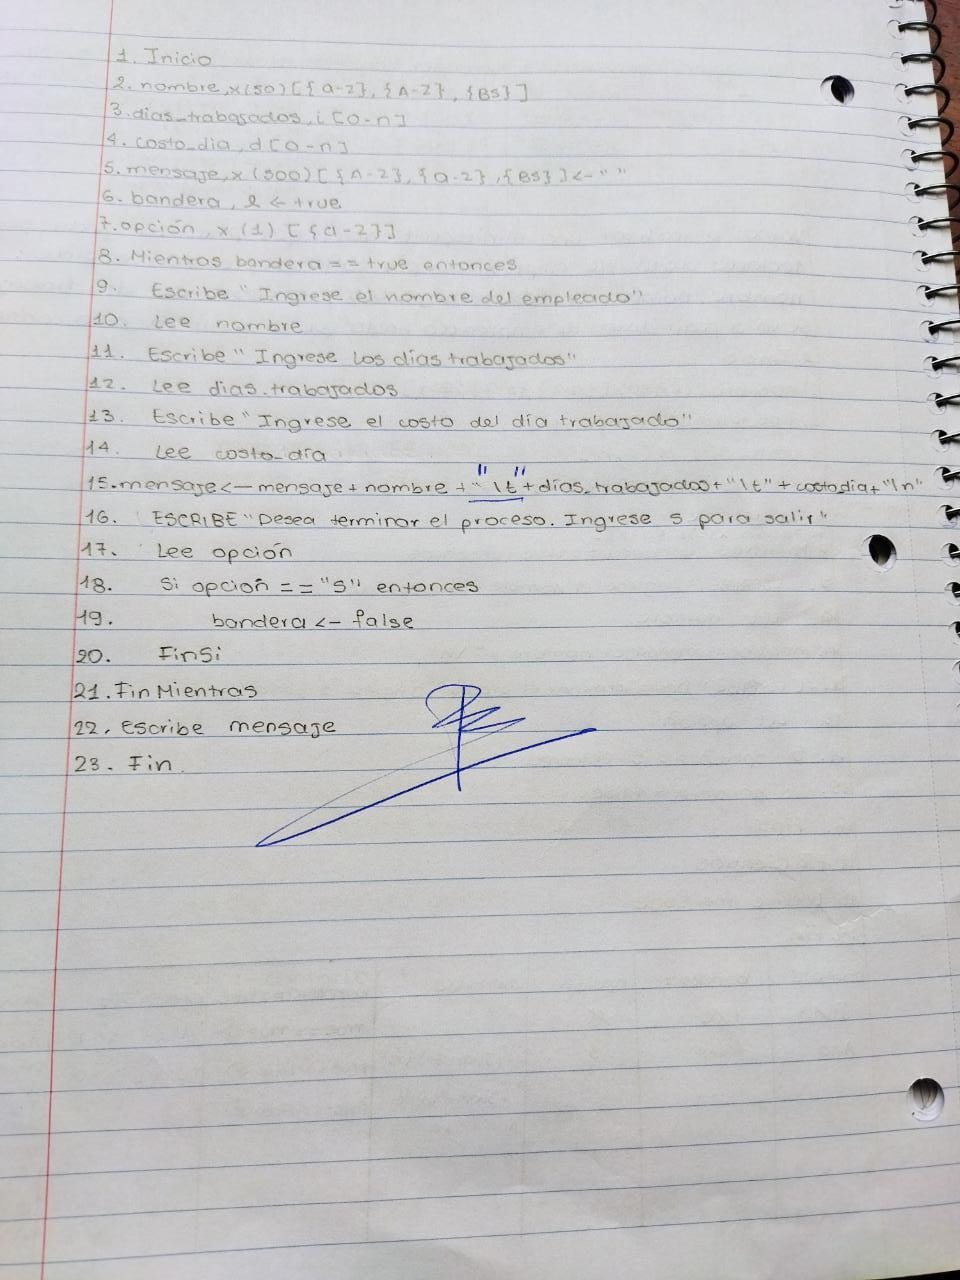 1. Inicio
2. nombre, x(50) [{a-z}, {A-Z}, {BS}]
3. dias_trabajados, i [0-n]
4. costo_dia, d [0-n]
5. mensaje, x (500) [{A-Z}, {a-z}, {BS}] <- " "
6. bandera, l <- true
7. opción, x (1) [{a-z}]
8. Mientras bandera == true entonces
9. Escribe "Ingrese el nombre del empleado"
10. Lee nombre
11. Escribe "Ingrese los días trabajados"
12. Lee dias_trabajados
13. Escribe "Ingrese el costo del día trabajado"
14. Lee costo_día
15. mensaje <- mensaje + nombre + "\t" + días_trabajados + "\t" + costo_dia + "\n"
16. ESCRIBE "Desea terminar el proceso. Ingrese s para salir"
17. Lee opción
18. Si opción == "S" entonces
19. bandera <- false
20. FinSi
21. FinMientras
22. Escribe mensaje
23. Fin.